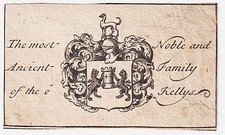 The most Noble and
Ancient Family
of the o' Kellys